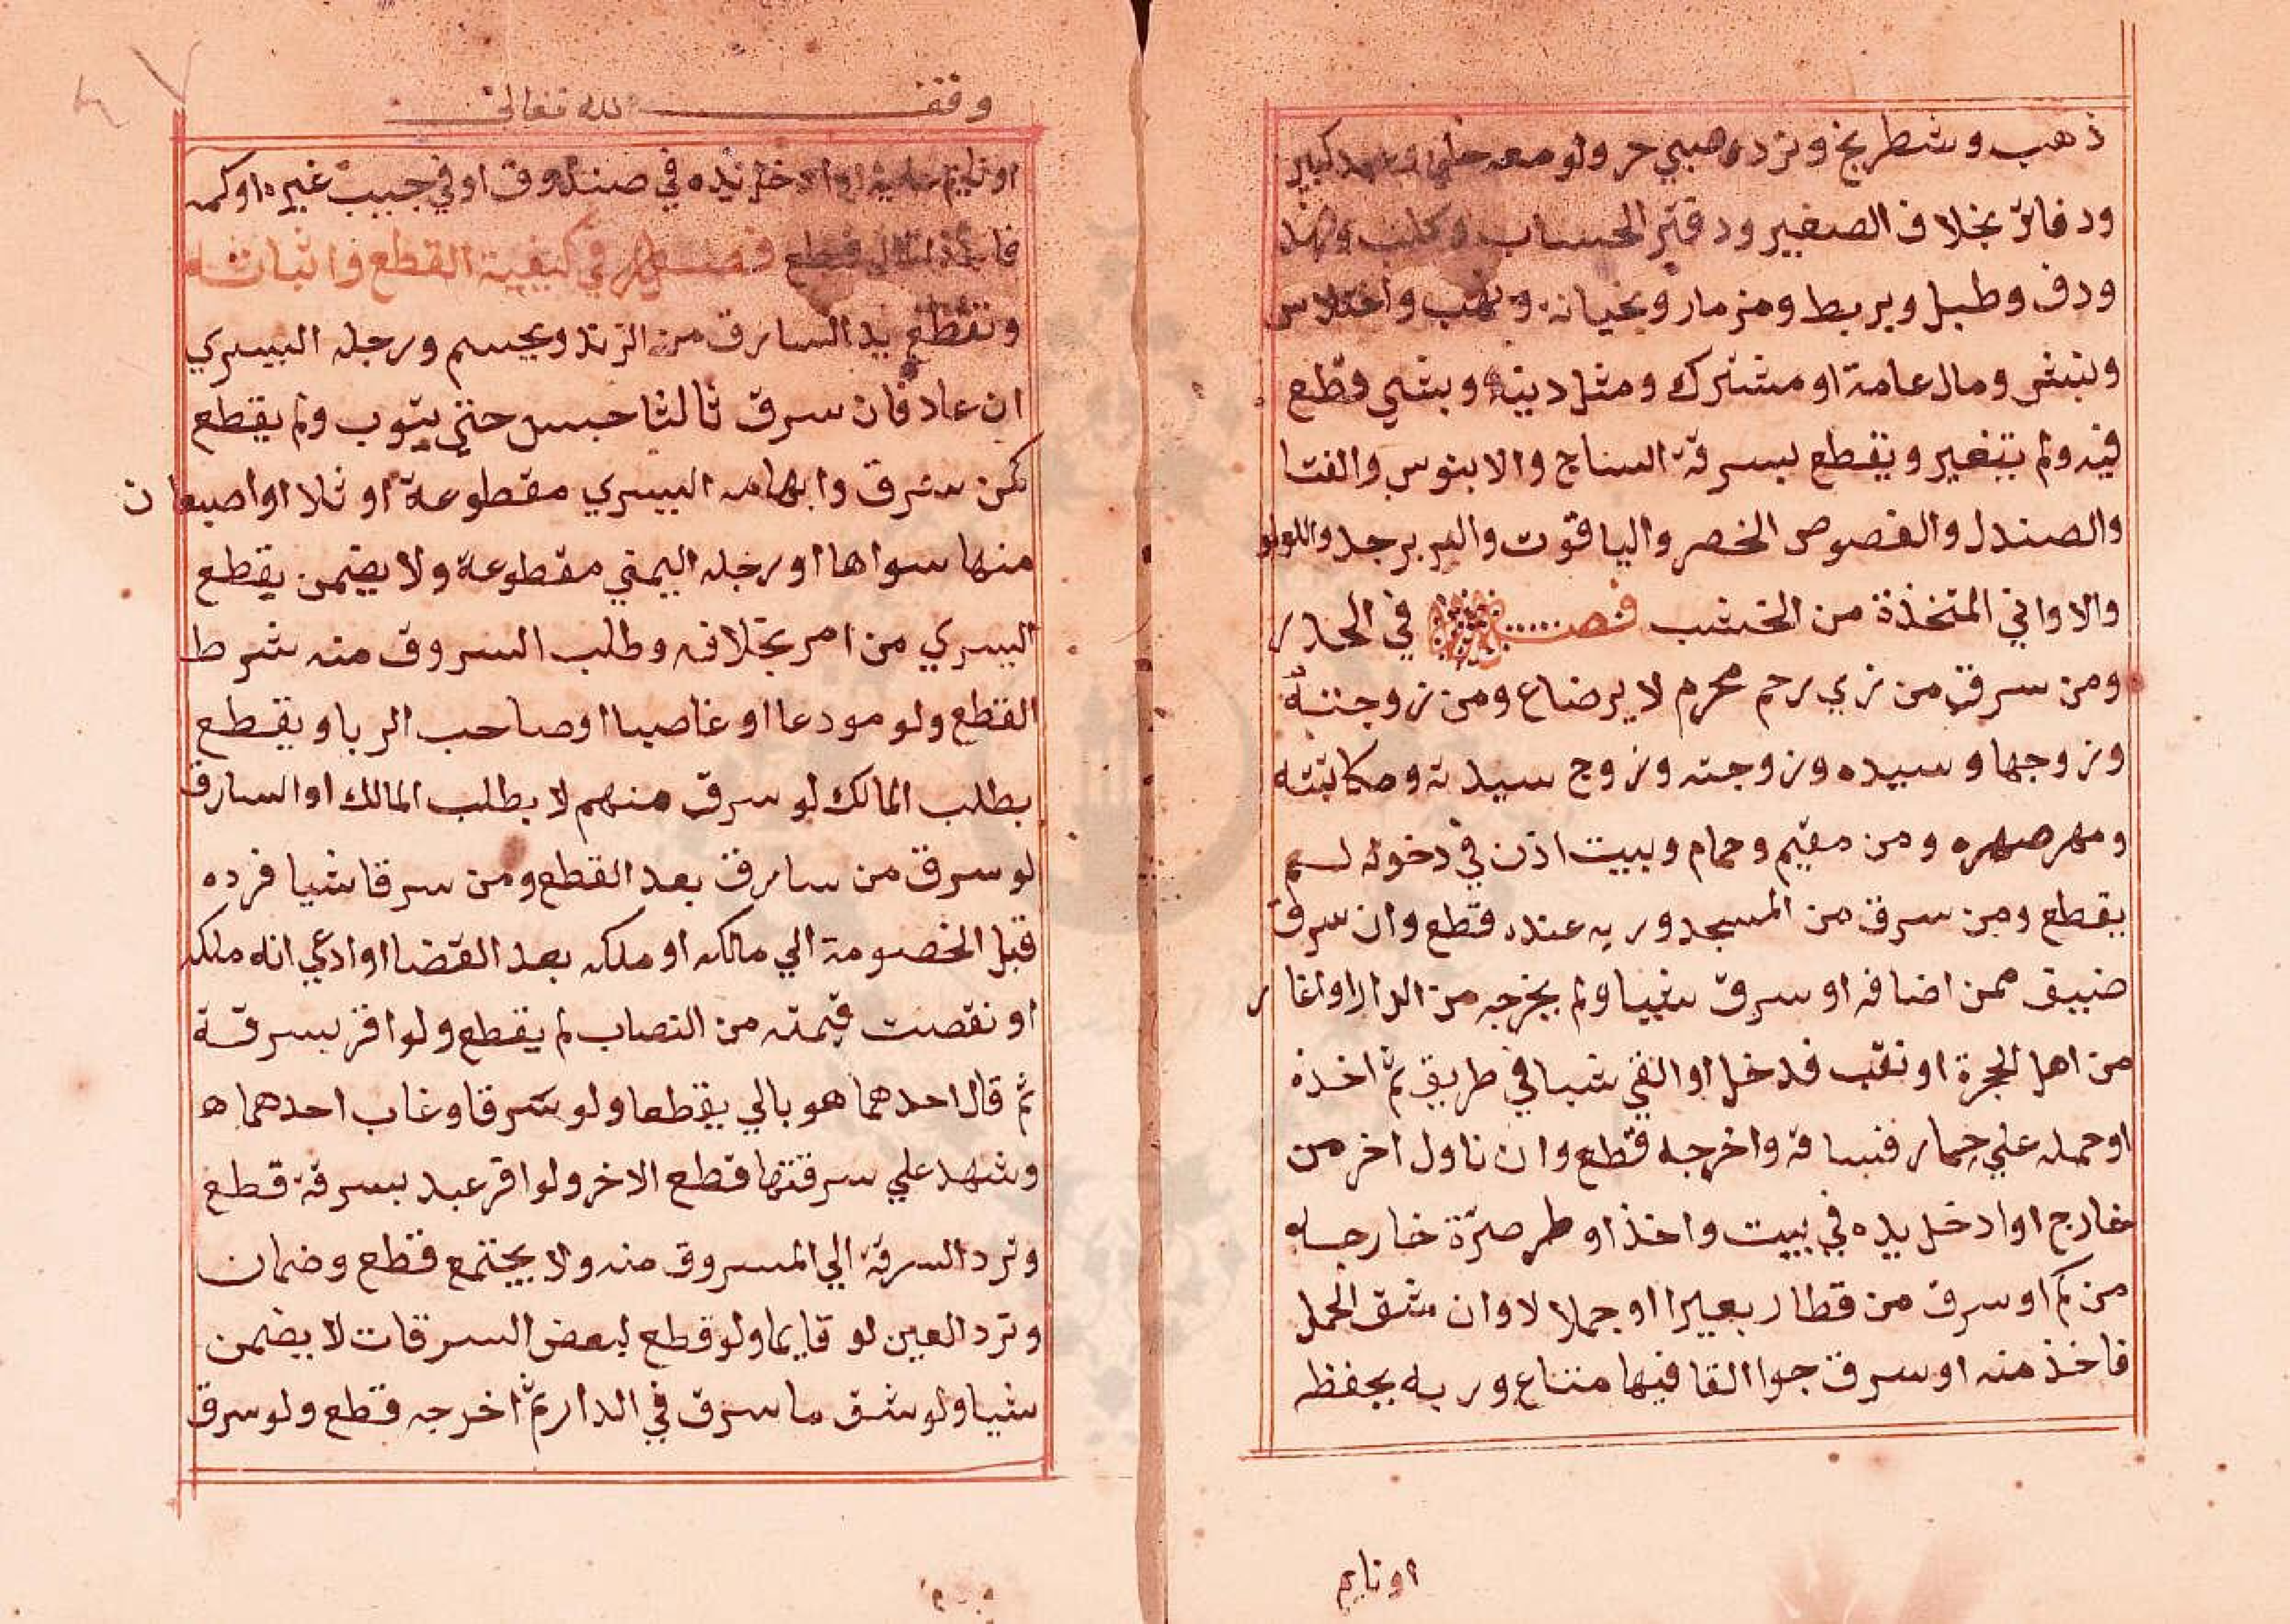 ذهب وشطرنج ونرد وصبي حر ولو معه حلي وعبد كبير
ودفاتر بخلاف الصغير ودفتر الحساب وكلب وفهد
ودف وطبل وبربط ومزمار وبخيانة ونهب واختلاس
ونبش ومال عامة او مشترك ومثل دينه وبشي قطع
فيه ولم يتغير ويقطع بسرقة الساج والابنوس والقنا
والصندل والفصوص الخضر والياقوت والزبرجد واللولو
والاواني المتخذة من الخشب فصـــل في الحدر
ومن سرق من زي رحم محرم لا برضاع ومن زوجته
وزوجها وسيده وزوجته وزوج سيدته ومكاتبته
ومهر صهره ومن مقيم وحمام وبيت اذن في دخوله لـم
يقطع ومن سرق من المسجد وربه عنده قطع وان سرق
ضيف ممن اضافه او سرق شيا ولم يخرجه من الدار او اغار
من اهل الحجرة او نقب فدخل او القي شيا في طريق ثم اخذه
او حمله علي حمار فساقه واخرجه قطع وان ناول اخر من
خارج او ادخل يده في بيت واخذ او طر صرة خارجـه
من كم او سرق من قطار بعيرا او جملا لا وان شق الحمل
فاخذ منه او سرق جوا القا فيها متاع وربه يحفظه
او نايم
وقفـــــ لله تعالى
او نايم عليه او ادخل يده في صندوق او في جيب غيره او كمه
فاخذ المال قطع فصـــل في كيفية القطع واثباته
وتقطع يد السارق من الزند ويحسم ورجله اليسري
ان عاد فان سرق ثالثا حبس حتي يتوب ولم يقطع
كمن سرق وابهامه اليسري مقطوعة او ثلا او اصبعان
منها سواها او رجله اليمني مقطوعة ولا يضمن يقطع
اليسري من امر بخلافه وطلب المسروق منه شرط
القطع ولو مودعا او غاصبا او صاحب الربا ويقطع
بطلب المالك لو سرق منهم لا بطلب المالك او السارق
لو سرق من سارق بعد القطع ومن سرقا شيا فرده
قبل الخصومة الي مالكه او ملكه بعد القضا او ادعي انه ملكه
او نقصت قيمته من النصاب لم يقطع ولو اقر بسرقـة
ثم قال احدهما هو بالي يقطعا ولو سرقا وغاب احدهما ه
وشهد علي سرقتها قطع الاخر ولو اقر عبد بسرقة قطع
وترد السرقة الي المسروق منه ولا يجتمع قطع وضمان
وترد العين لو قايما ولو قطع لبعض السرقات لا يضمن
شيا ولو شق ما سرق في الدار ثم اخرجه قطع ولو سرق